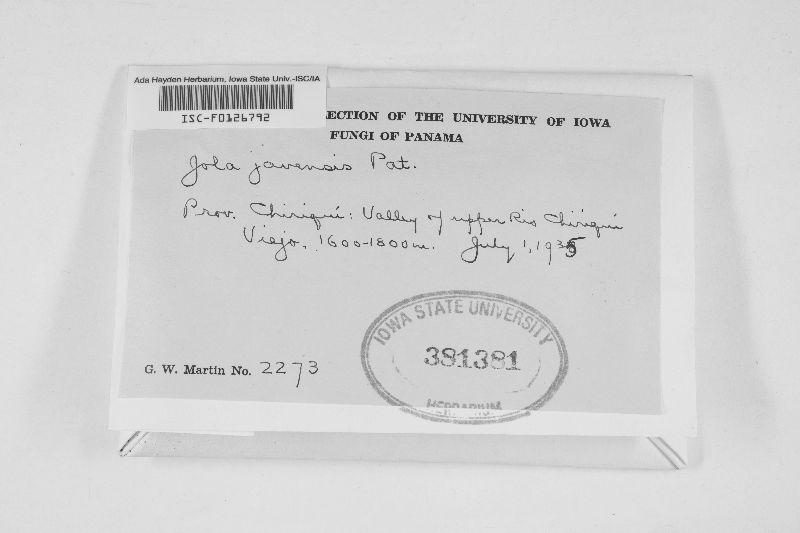 Ada Hayden Herbarium, Iowa State Univ.-ISC/IA
ISC-F0126792
ECTION OF THE UNIVERSITY OF IOWA
FUNGI OF PANAMA
Jola javensis Pat.
Prov. Chiriquí: Valley of upper Rio Chiriquí
Viejo. 1600-1800m. July 1, 1935
IOWA STATE UNIVERSITY
381381
HERBARIUM
G. W. Martin No. 2273